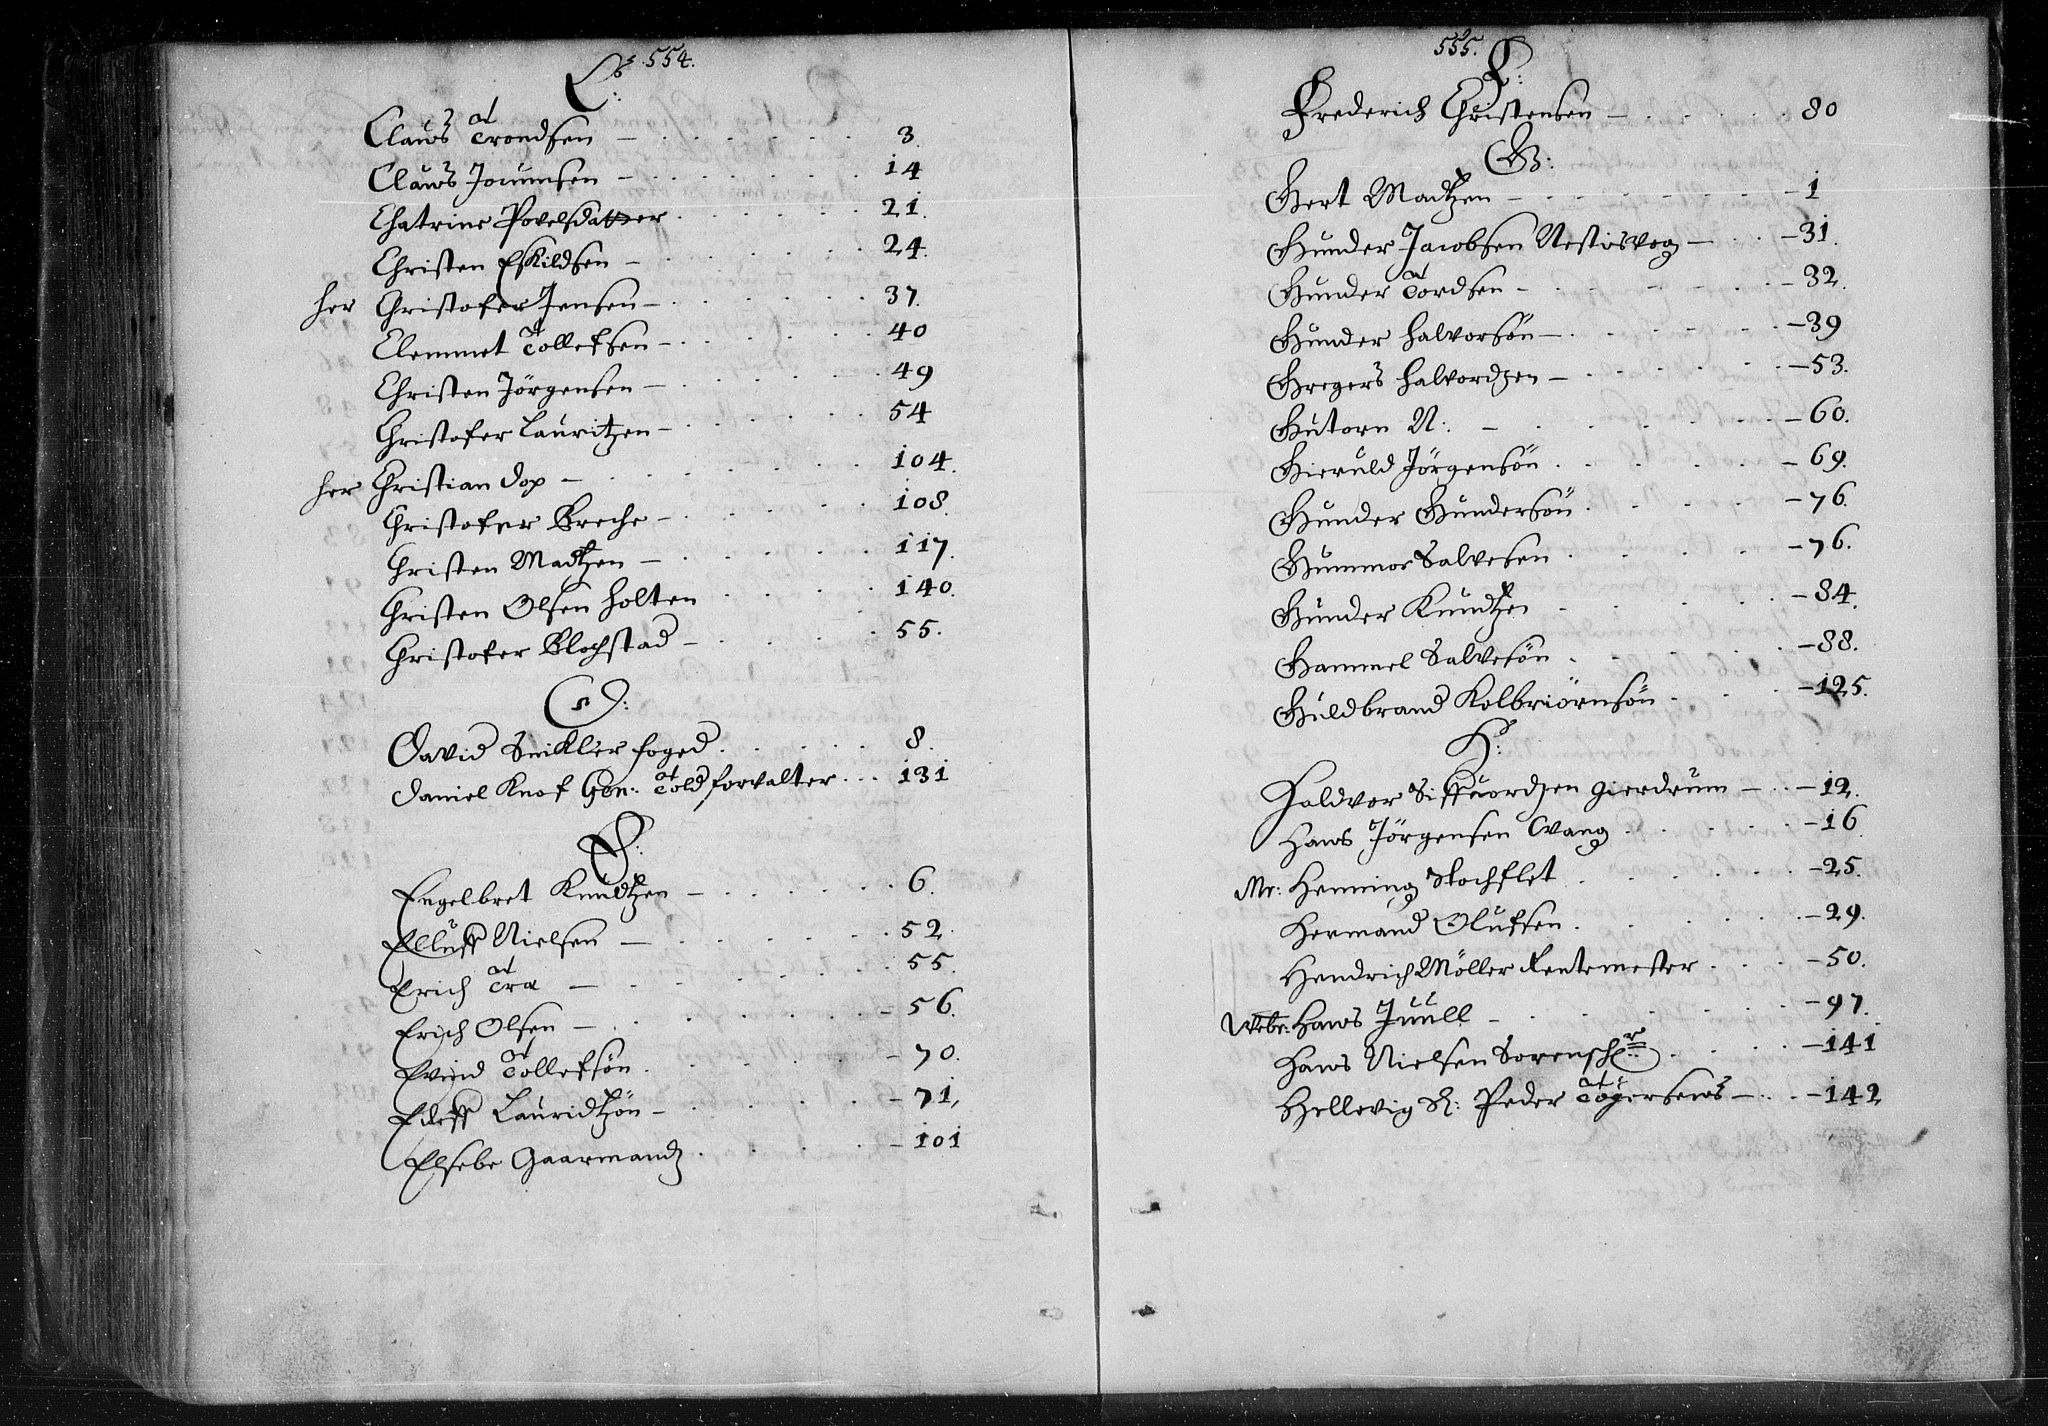 554.
C:
Claus Trondsen — 3.
Claus Jocumsen — 14
Chatrine Povelsdatter 21.
Christen Eskildsen — 24.
her Christofer Jensen — 37.
Clemmet Tollefsen — 40
Christen Jörgensen — 49
Christofer Lauritzen — 54
her Christian Dop — 104.
Christofer Breche — 108.
Christen Madtzen — 117.
Christen Olsen Holten 140.
Christofer Blochstad — 55.
D:
David Sinkler foged 8.
Daniel Knof Gen: Toldforvalter 131
E:
Engelbret Knudtzen — 6.
Elluff Nielsen — 52.
Erich Tra — 55.
Erich Olsen — 56.
Evind Tollefsön — 70.
Eileff Lauridtzön — 71,
Elsebe Gaarmandz — 101
555.
F:
Frederich Christensen — 80
G:
Gert Madtzen — 1
Gunder Jacobsen Nestisvog — 31.
Gunder Tordsen — 32.
Gunder Halvorsön — 39
Gregers Halvordzen — 53.
Gutorn N: — 60.
Gieruld Jörgensön — 69.
Gunder Gundersön — 76.
Gummor Salvesen — 76.
Gunder Knudtzen — 84.
Gammel Salvesön — 88.
Guldbrand Kolbriörnsön — 125.
H:
Haldvor Siffuordzen Gierdrum — 12.
Hans Jörgensen Wang — 16
Mr: Henning Stochflet — 25.
Hermand Olufsen — 29.
Hendrich Möller Rentemester — 50.
Welbr: Hans Juull — 97.
Hans Nielsen — 141
Hellevig S: Peder Tögersens — 142